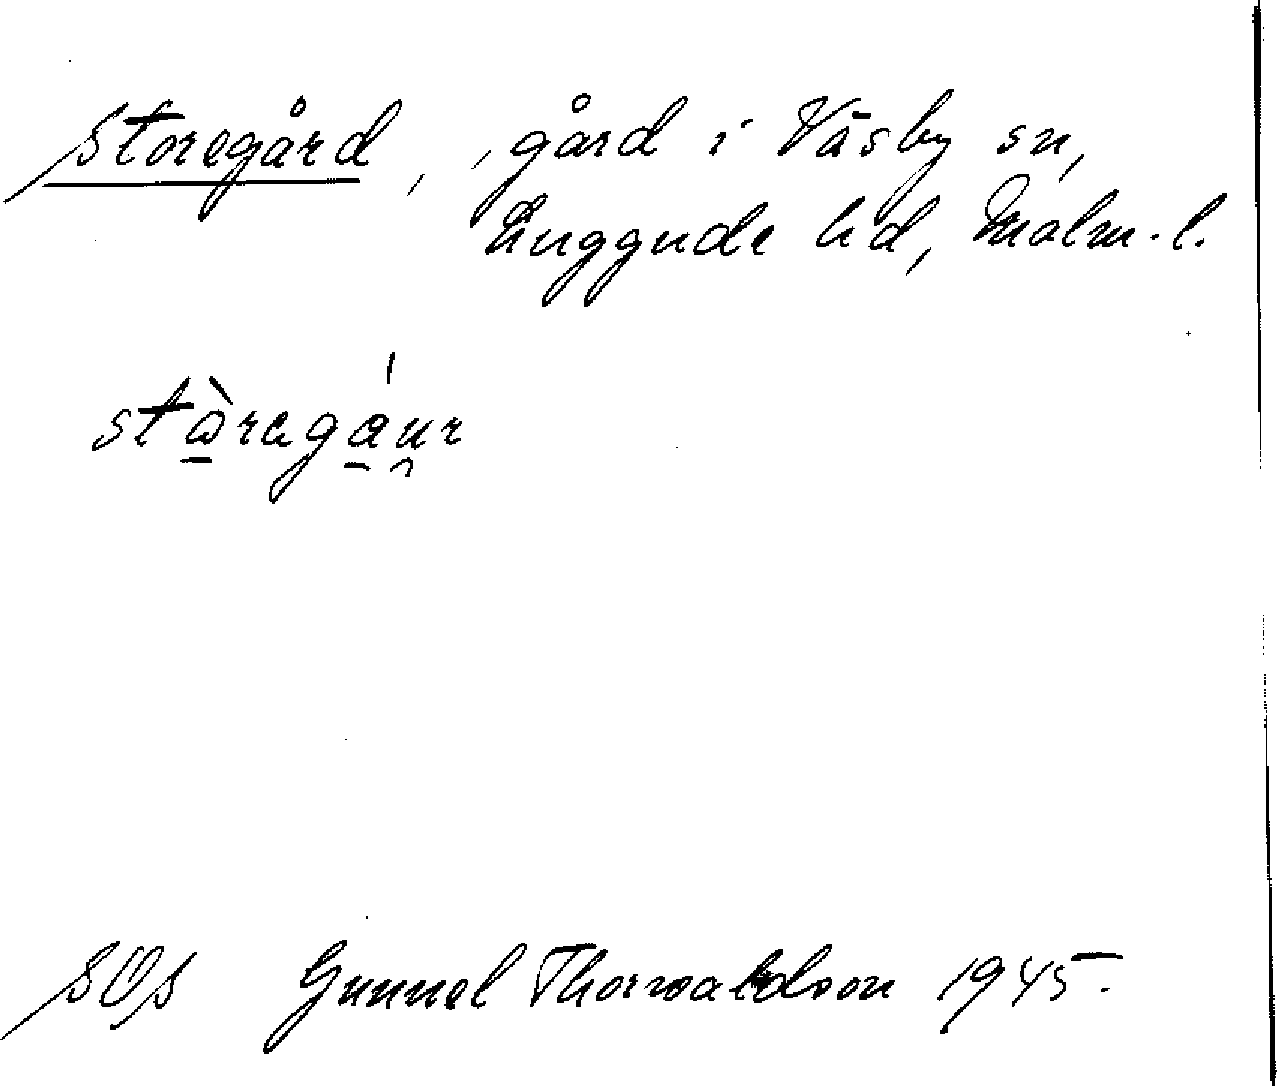 Storegård, gård i Väsby sn,
Luggude hd, Malm. l.
stòregáur
SOS Gunnel Thorwaldson 1945.